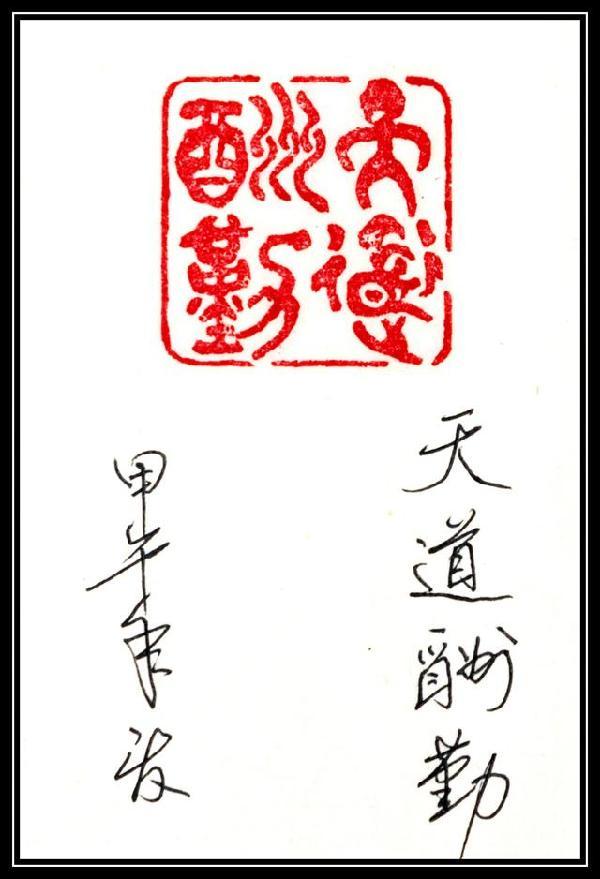 天道
酬勤
天道酬勤
甲午年